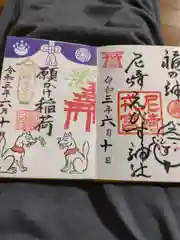 福の神
尼崎えびす神社
令和三年六月十日
願かけ稲荷
令和三年六月十日